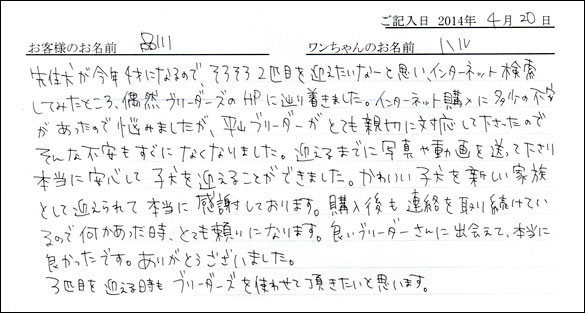 ご記入日 2014年 4月20日
お客様のお名前 品川 ワンちゃんのお名前 ハル
先住犬が今年4才になるので、そろそろ2匹目を迎えたいなーと思い、インターネット検索
してみたところ、偶然ブリーダーズのHPに辿り着きました。インターネット購入に多少の不安
があったので悩みましたが、平山ブリーダーがとても親切に対応して下さったので
そんな不安もすぐになくなりました。迎えるまでに写真や動画を送って下さり
本当に安心して子犬を迎えることができました。かわいい子犬を新しい家族
として迎えられて本当に感謝しております。購入後も連絡を取り続けてい
るので何かあった時、とても頼りになります。良いブリーダーさんに出会えて、本当に
良かったです。ありがとうございました。
3匹目を迎える時もブリーダーズを使わせて頂きたいと思います。